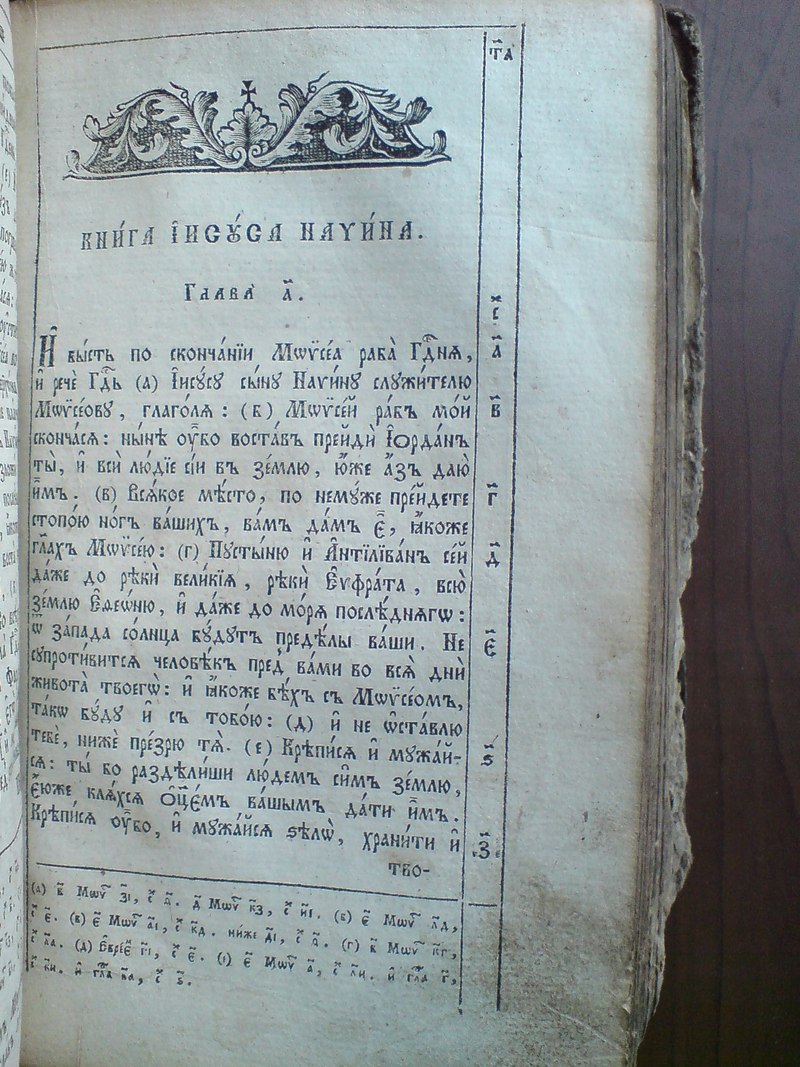 т҃а
КНИ́ГА І҆ИСꙊ́СА НАѴИ́НА.
Глава̀ а҃.
с҃
И҆ бы́сть по сконча́нїи Мѡѷсе́а раба̀ Гдⷭ҇нѧ, а҃
и҆ речѐ Гдⷭ҇ь (а) І҆исꙋ́сꙋ сы́нꙋ Наѵи́нꙋ слꙋжи́телю
Мѡѷсе́овꙋ, глаго́лѧ: (б) Мѡѷсе́й ра́бъ мо́й в҃
сконча́сѧ: ны́нѣ ᲂу҆̀бо воста́въ прейдѝ І҆ѻрда́нъ
ты̀, и҆ всѝ лю́дїе сі́и въ зе́млю, ю҆́же а҆́зъ даю̀
и҆̀мъ. (в) Всѧ́кое мѣ́сто, по немꙋ́же пре́йдете г҃
стопо́ю но́гъ ва́шихъ, ва́мъ да́мъ є҆̀, ꙗ҆́коже
гл҃ахъ Мѡѷсе́ю: (г) Пꙋсты́ню и҆ А҆нтїліва́нъ се́й д҃
да́же до рѣкѝ вели́кїѧ, рѣкѝ Е҆ѵфра́та, всю̀
зе́млю Е҆ѳео́ню, и҆ да́же до мо́рѧ послѣ́днѧгѡ:
ѿ за́пада со́лнца бꙋ́дꙋтъ предѣ́лы ва́ши. Не є҃
сꙋпроти́витсѧ человѣ́къ пред̾ ва́ми во всѧ̀ днѝ
живота̀ твоегѡ̀: и҆ ꙗ҆́коже бѣ́хъ съ Мѡѷсе́омъ,
та́кѡ бꙋ́дꙋ и҆ съ тобо́ю: (д) и҆ не ѡ҆ста́влю
тебѐ, нижѐ пре́зрю тѧ̀. (е) Крѣпи́сѧ и҆ мꙋжа́й- ѕ҃
сѧ: ты́ бо раздѣли́ши лю́демъ си̑мъ зе́млю,
ю҆́же клѧ́хсѧ Ѻ҆ц҃є́мъ ва́шымъ да́ти и҆̀мъ.
Крѣпи́сѧ ᲂу҆̀бо, и҆ мꙋжа́йсѧ ѕѣлѡ̀, храни́ти и҆ з҃
тво-
(а) в҃ Мѡѷ зі҃, с҃ д҃. д҃ Мѡѷ кз҃, с҃ иі҃. (б) є҃ Мѡѷ лд҃,
с҃ є҃. (в) є҃ Мѡѷ аі҃, с҃ кд҃. ниже ді҃, с҃ ѳ҃. (г) в҃ Мѡѷ кг҃,
с҃ ла҃. (д) Е҆вре́є гі҃, с҃ є҃. є҃ Мѡѷ